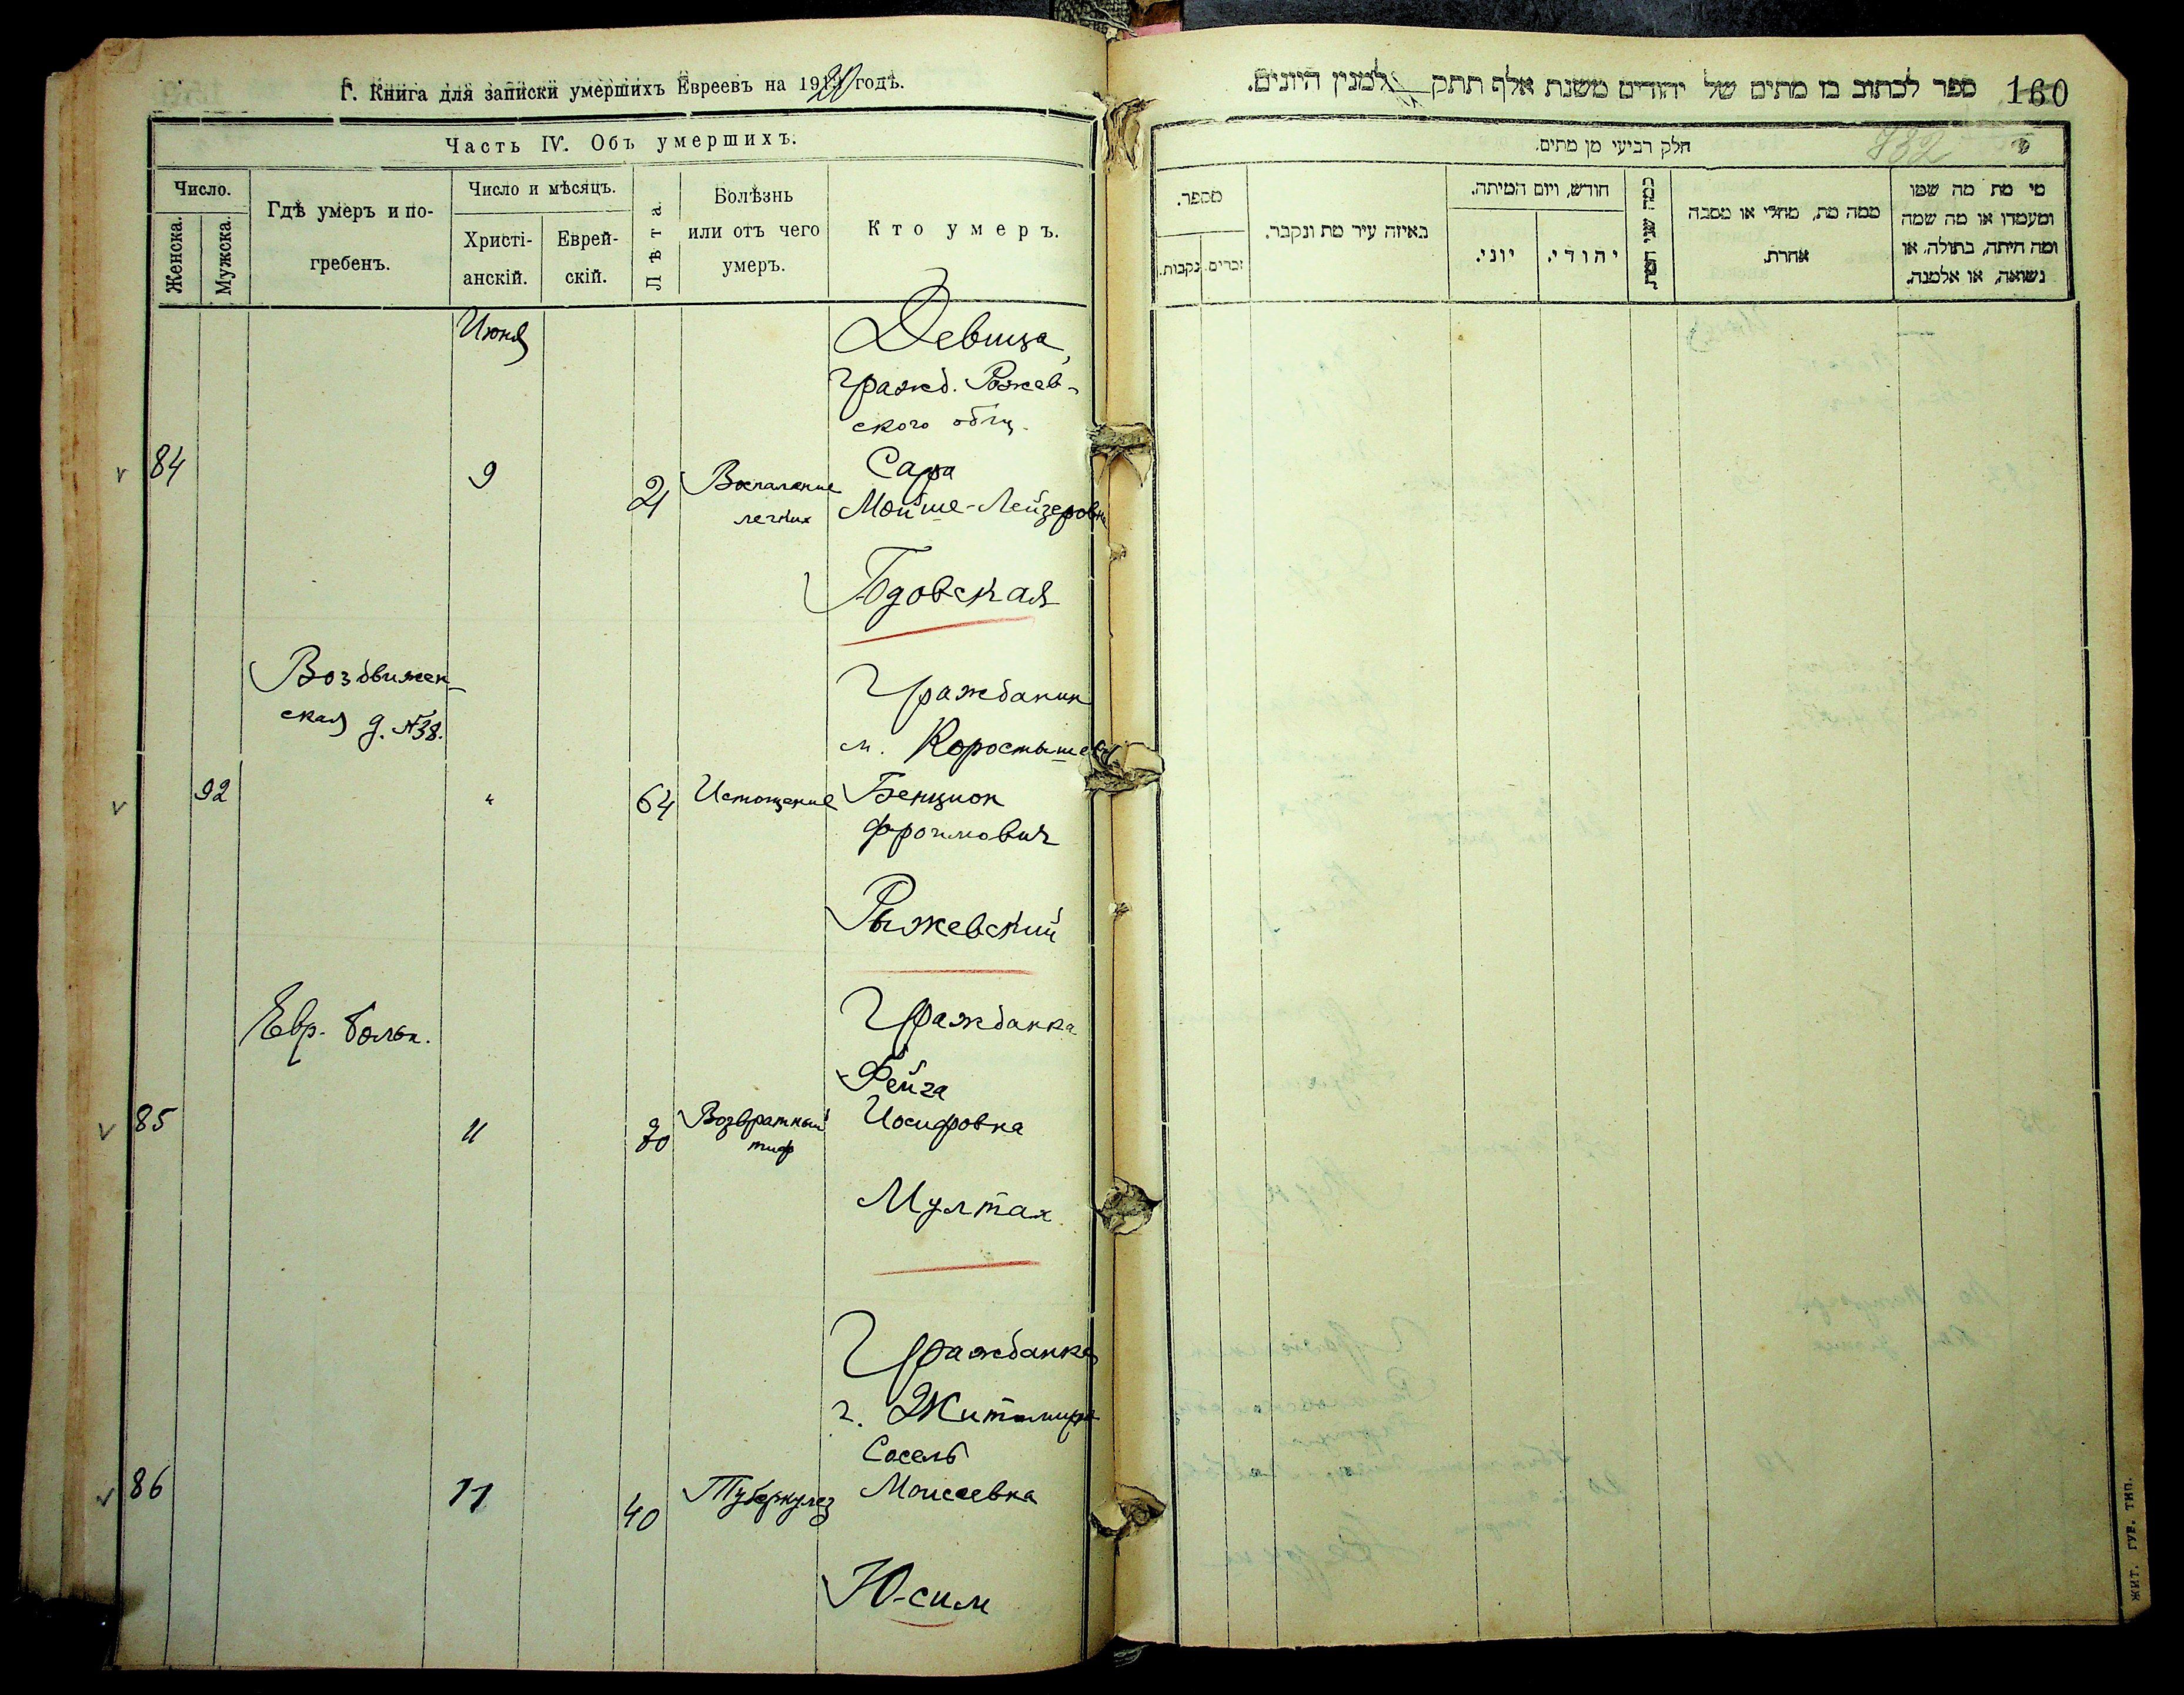 Г. Книга для записки умершихъ Евреевъ на 1920 годъ.
Часть IV. Объ умершихъ.
Число.
Женска.
Мужска.
Гдѣ умеръ и по-
гребенъ.
Число и мѣсяцъ.
Христі-
анскій.
Еврей-
скій.
Лѣта.
Болѣзнь
или отъ чего
умеръ.
Кто умеръ.
Июня
Девица,
гражд. Рожев-
ского общ.
84
9
21
Воспаление
легких
Сара
Мойше-Лейзеровна
Годовская
Воздвижен-
ская д. №38.
Гражданин
м. Коростышева
92
"
64
Истощение
Бенцион
Фроимович
Рыжевский
Евр. больн.
Гражданка
Фейга
85
11
30
Возвратный
тиф
Иосифовна
Мултан
Гражданка
г. Житомира
Сосель
86
11
40
Туберкулез
Моисеевна
Юсим
ספר לכתוב בו מתים של יהודים משנת אלף תתק למנין היונים.
160
732
חלק רביעי מן מתים.
מספר.
נקבות.
זכרים.
באיזה עיר מת ונקבר.
חודש, ויום המיתה.
יוני.
יהודי.
כמה שני המת
ממה מת, מחלי או מסבה
אחרת.
מי מת מה שמו
ומעמדו או מה שמה
ומה היתה, בתולה, או
נשואה, או אלמנה.
ЖИТ. ГУБ. ТИП.